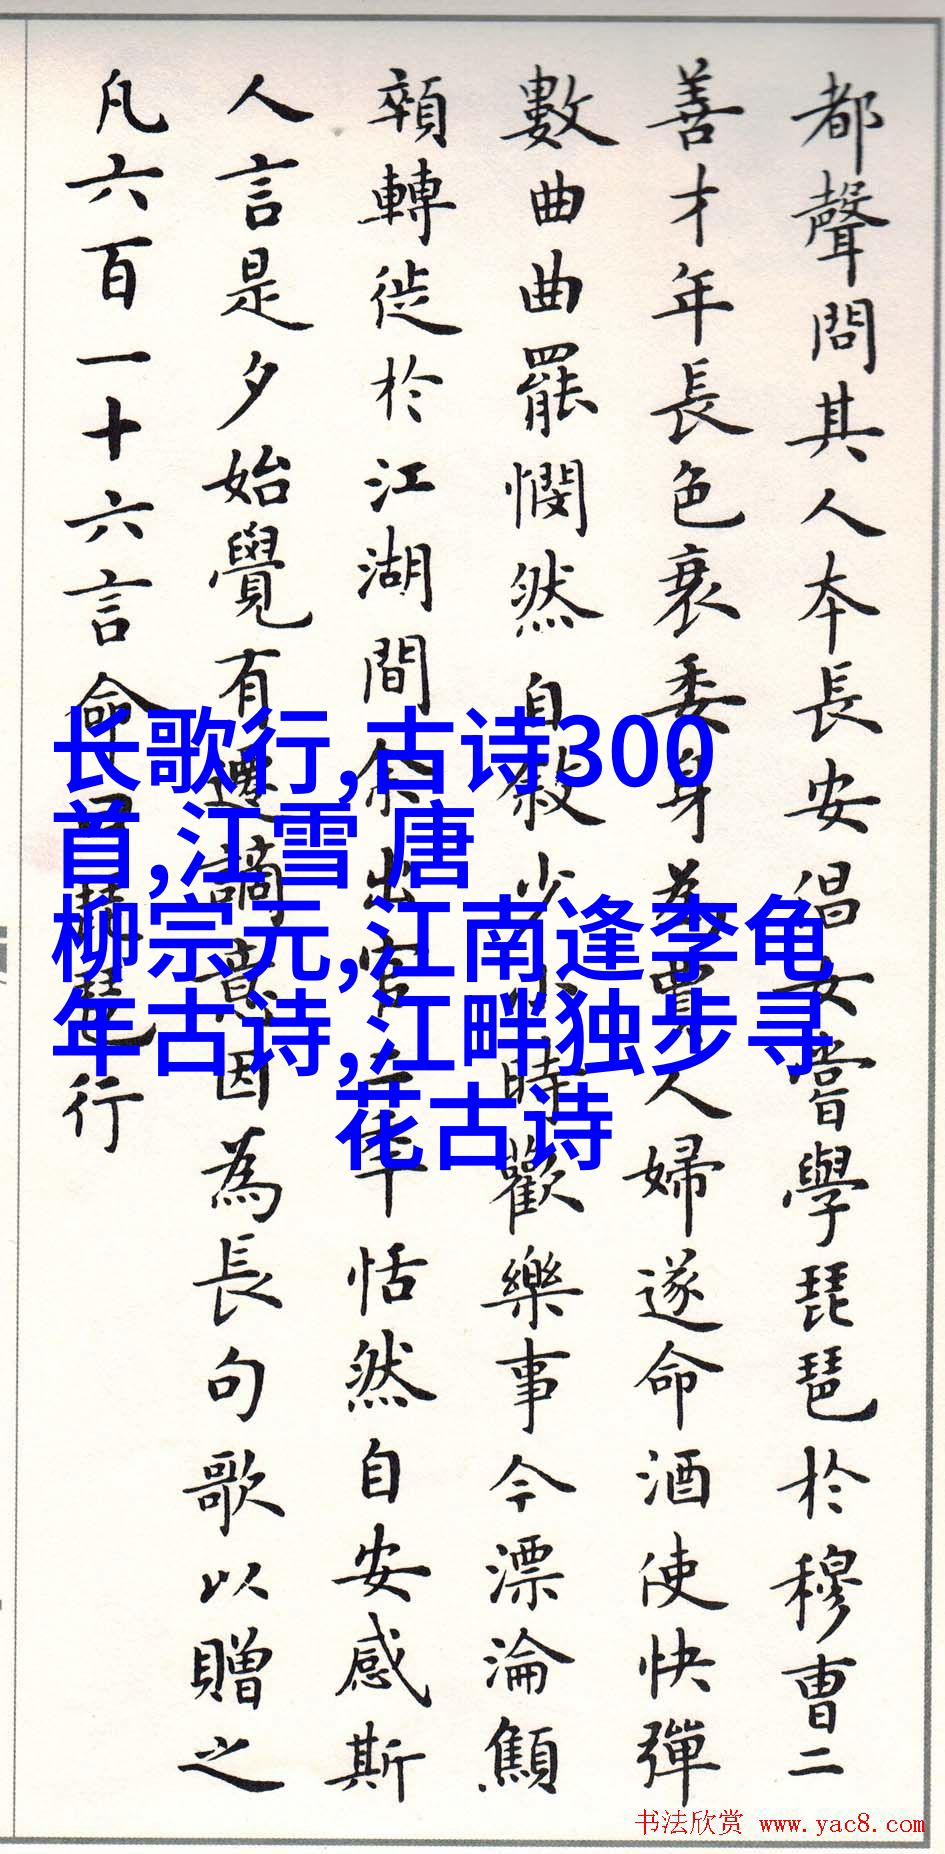 都聲問其人本長安倡女嘗學琵琶於穆曹二
善才年長色衰委身為賈人婦遂命酒使快彈
數曲曲罷憫然自敘少小時歡樂事今漂淪顦
顇轉徙於江湖間余出官二年恬然自安感斯
人言是夕始覺有遷謫意因為長句歌以贈之
凡六百一十六言命曰琵琶行
长歌行,古诗300
首,江雪 唐
柳宗元,江南逢李龟
年古诗,江畔独步寻
花古诗
书法欣赏 www.yac8.com